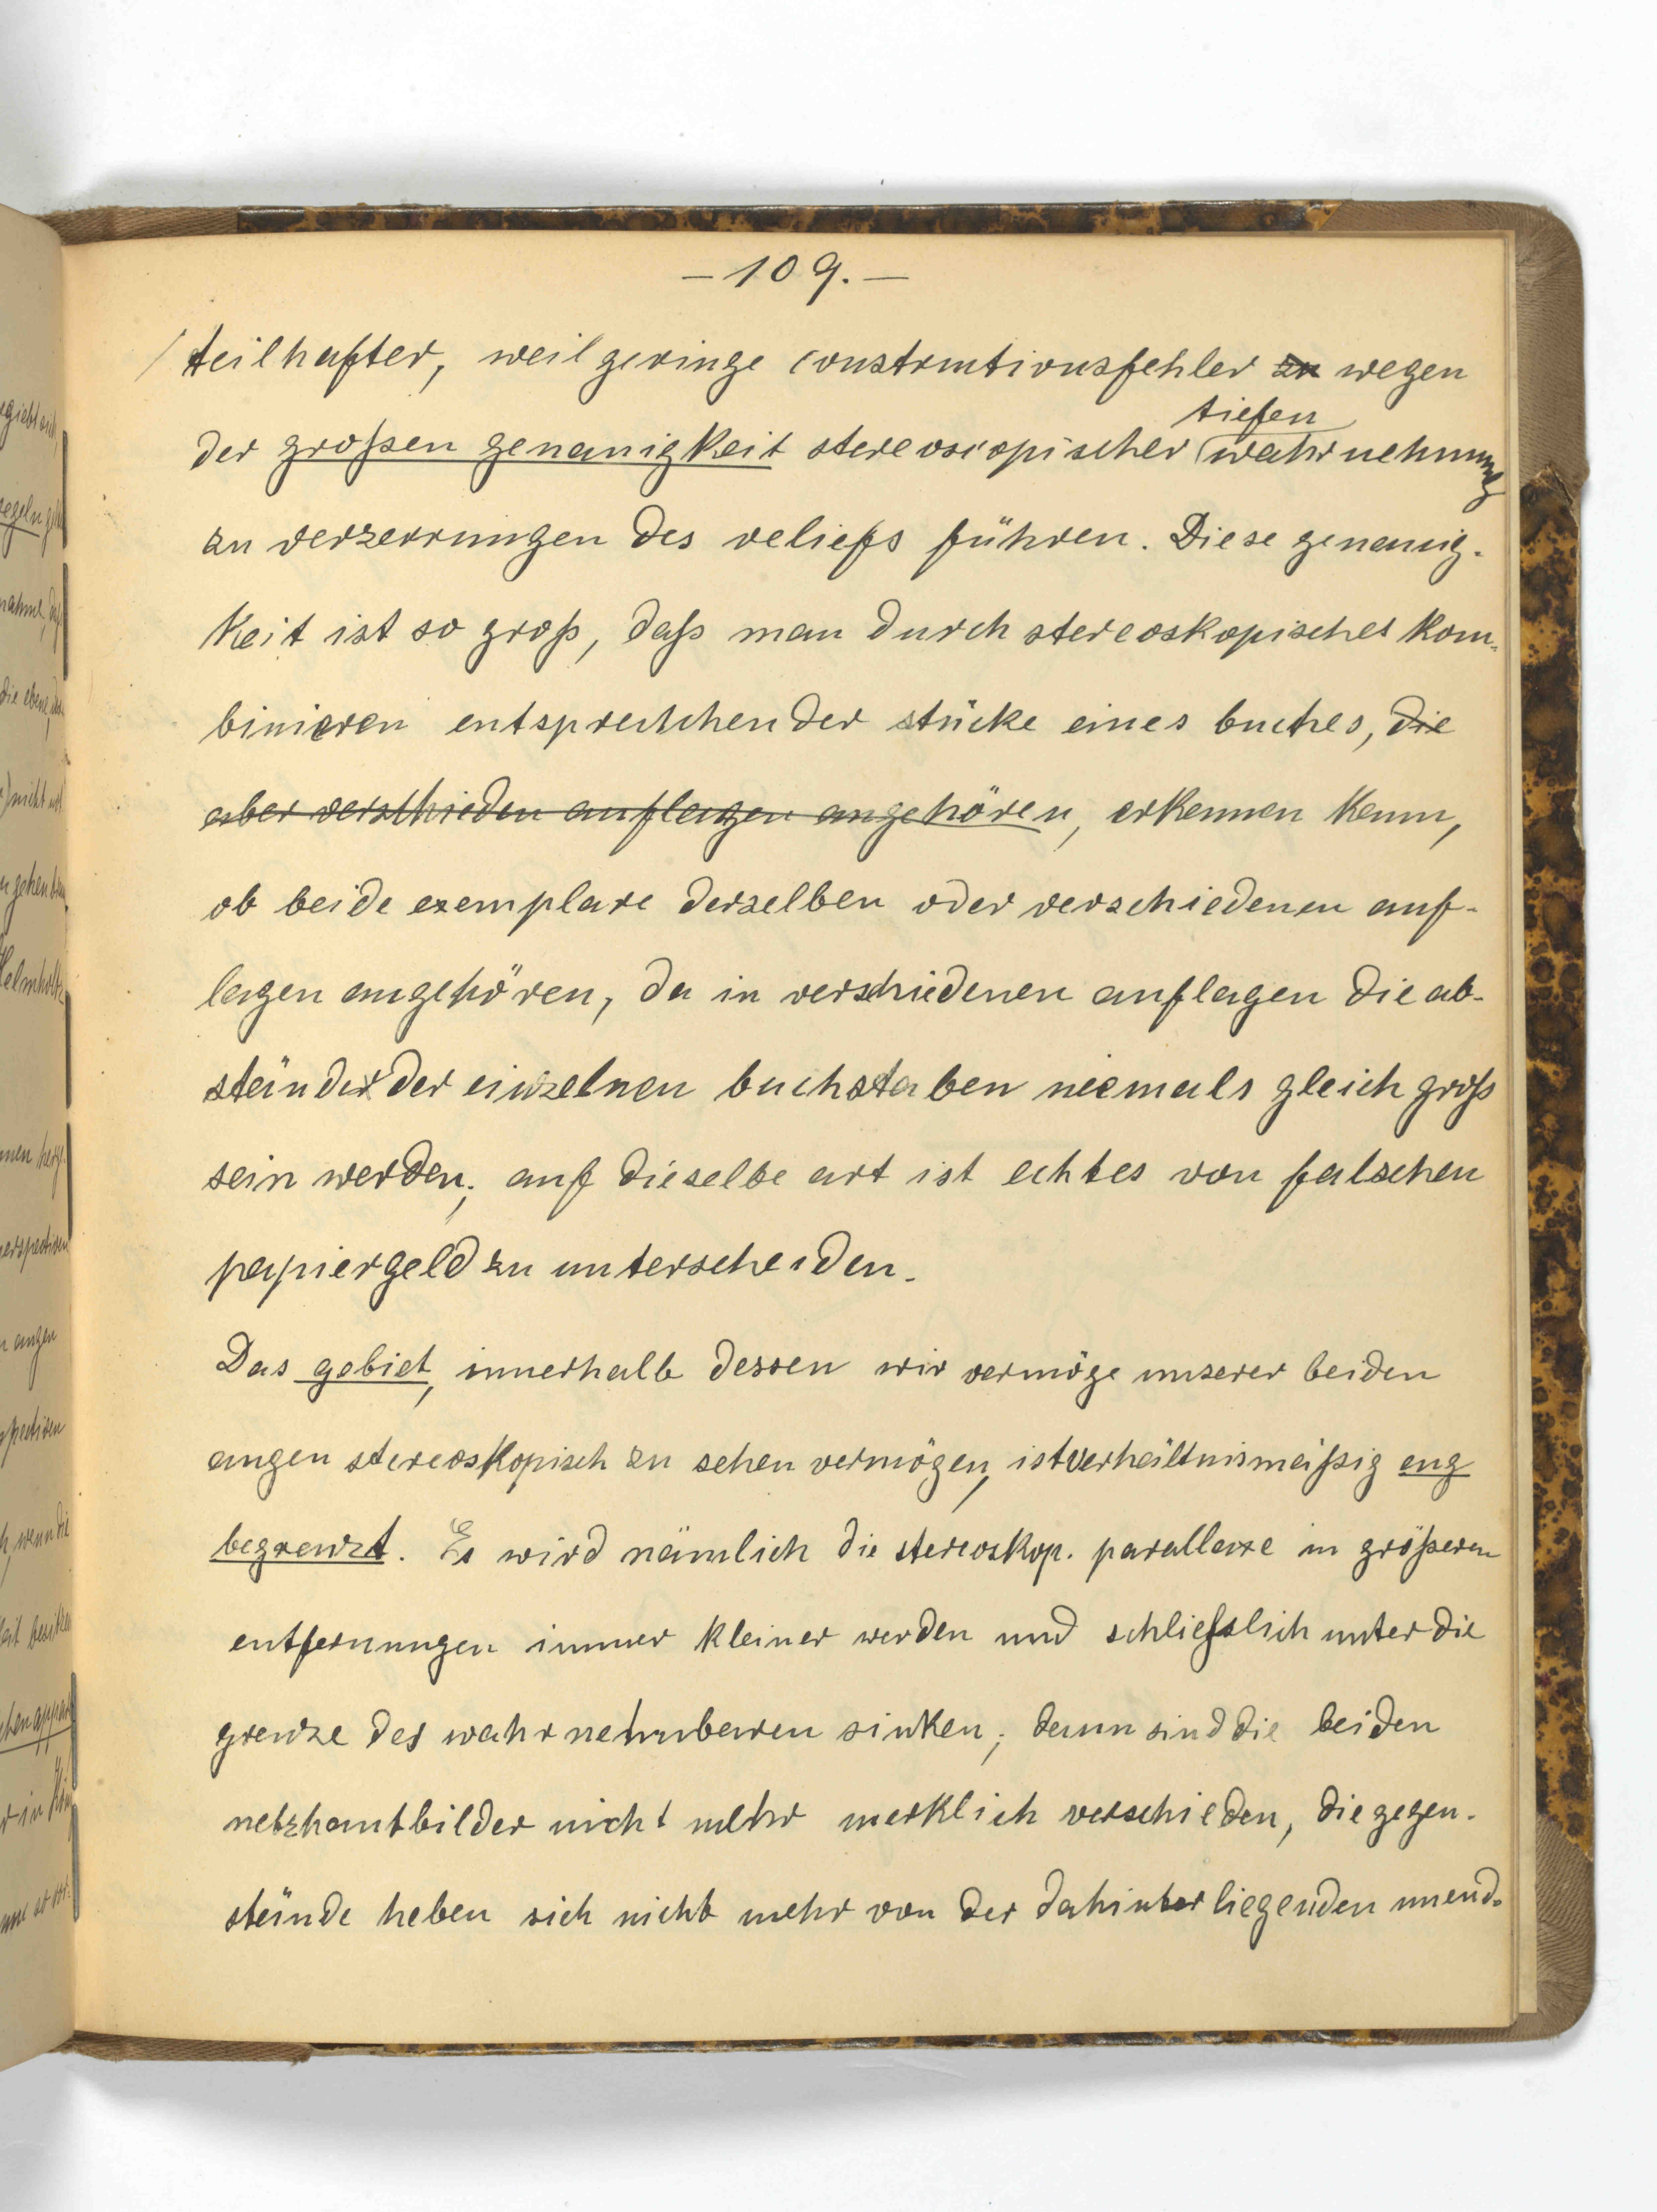 – 109. –
teilhafter, weil geringe constructionsfehler zu wegen
tiefen
der großen genauigkeit stereoscopischer wahrnehmung
zu verzerrungen des reliefs führen. Diese genauig-
keit ist so groß, daß man durch stereoskopisches kom-
binieren entsprechender stücke eines buches, die
aber verschieden auflagen angehören, erkennen kann,
ob beide exemplare derselben oder verschiedenen auf-
lagen angehören, da in verschiedenen auflagen die ab-
stände der einzelnen buchstaben niemals gleich groß
sein werden; auf dieselbe art ist echtes von falschen
papiergeld zu unterscheiden.
Das gebiet, innerhalb dessen wir vermöge unserer beiden
augen stereoskopisch zu sehen vermögen, ist verhältnismäßig eng
begrenzt. Es wird nämlich die stereoskop. parallaxe in größeren
entfernungen immer kleiner werden und schliesslich unter die
grenze des wahrnehmbaren sinken; dann sind die beiden
netzhautbilder nicht mehr merklich verschieden, die gegen-
stände heben sich nicht mehr von der dahinter liegenden unend-